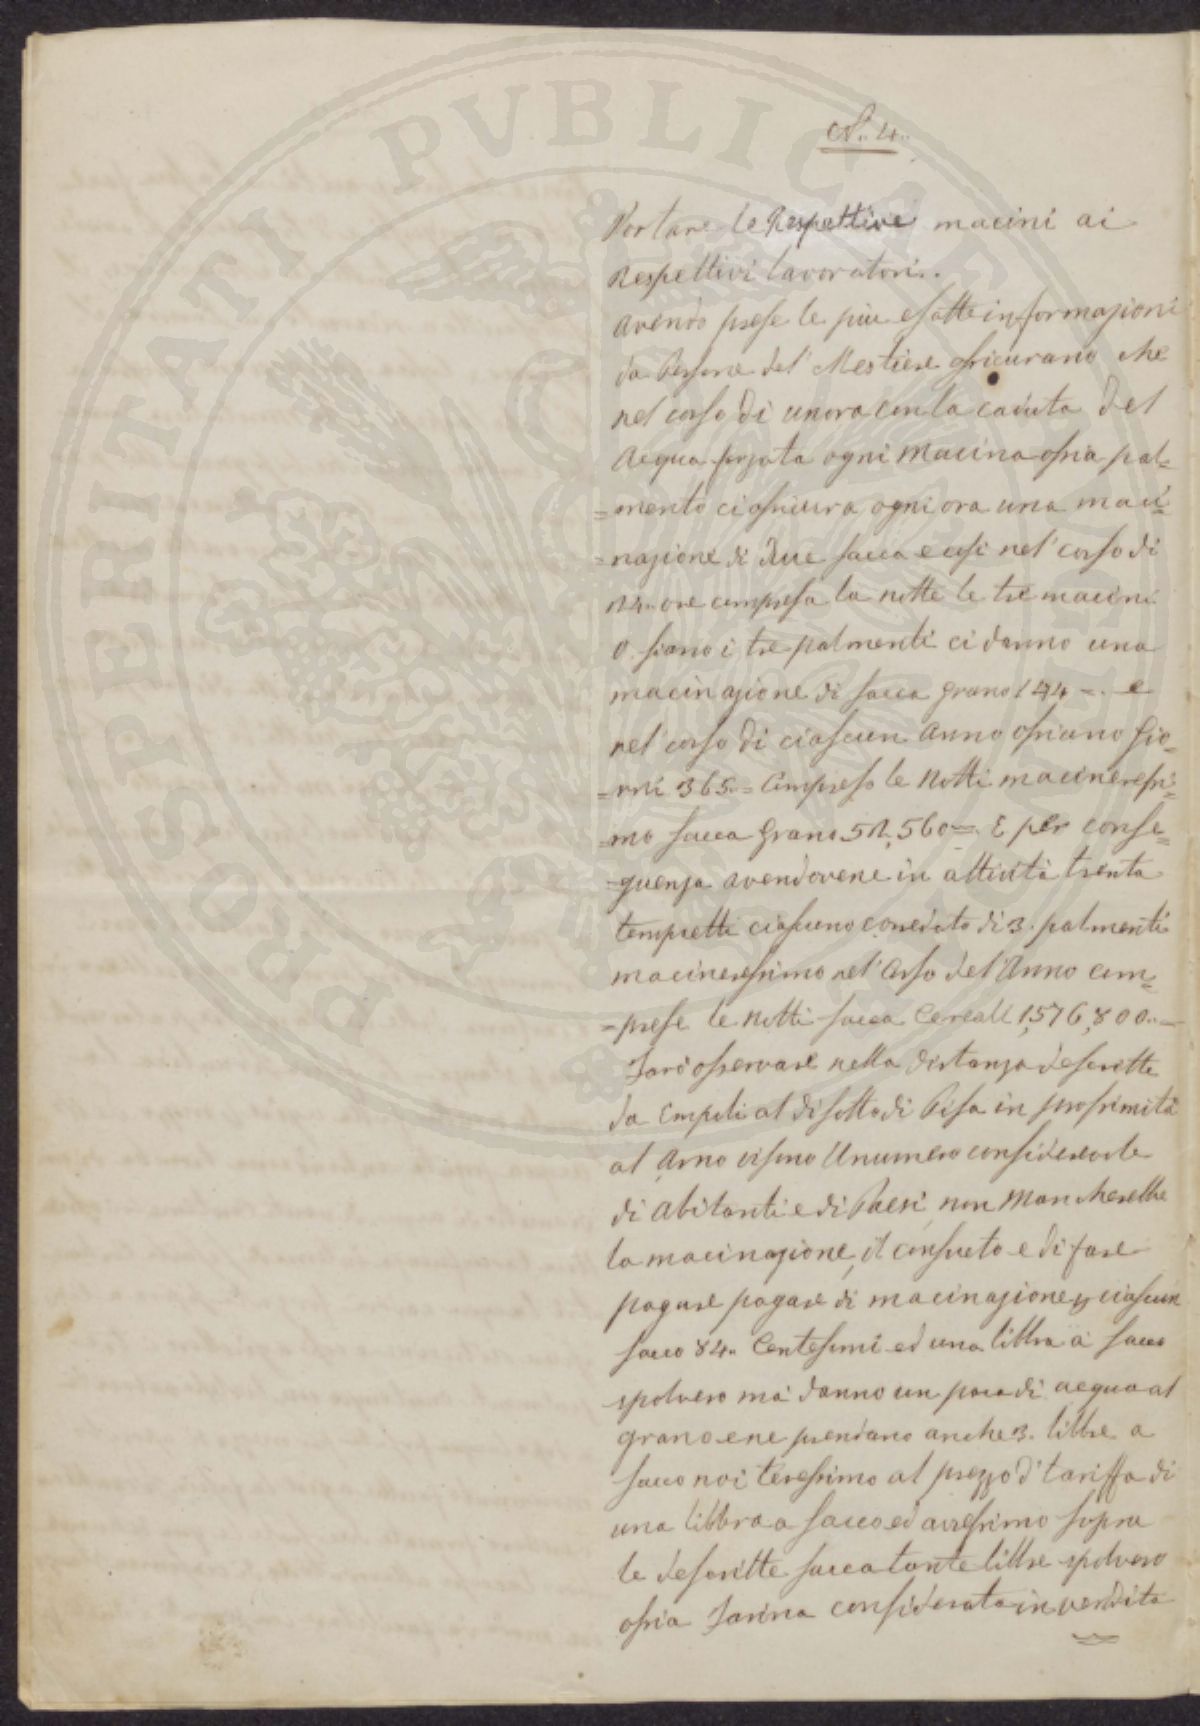 N.. 4..
Portare le Respettive macini ai
Respettivi lavoratori..
avendo prese le più esatte informazioni
da Persone del' Mestiere assicurano che
nel corso di unora con la caduta del
Acqua forzata ogni Macina ossia pal=
=mento ci assicura ogni ora una maci=
=nazione di due sacca e così nel' corso di
24.. ore compresa la notte le tre macini
o siano i tre palmenti ci danno una
macinazione di sacca grano 144 = . e
nel' corso di ciascun Anno ossiano Gio=
=rni 365.= Compreso le Notti macineressi=
=mo sacca Grano 52,560=. E per conse=
=guenza avendovene in attività trenta
tempietti ciascuno coredato di 3. palmenti
macineressimo nel' Corso del' Anno com=
=prese le Notti sacca Cereali 1,576,800..=
Farò osservare nella distanza descritte
da Empoli al disotto di Pisa in prossimità
al Arno visono Unumero considerevole
di abitanti e di Paesi non Mancherebbe
la macinazione, il consueto e di fare
pagare pagare di macinazione ciascun
sacco 84.. Centesimi ed una libbra a sacco
spolvero mà danno un poca di acqua al
grano e ne prendano anche 3. libbre a
sacco noi teressimo al prezzo d' tariffa di
una libbra a sacco ed avressimo sopra
le descritte sacca tante libbre spolvero
ossia Farina considerata in vendita
PROSPERITATI PVBLICAE